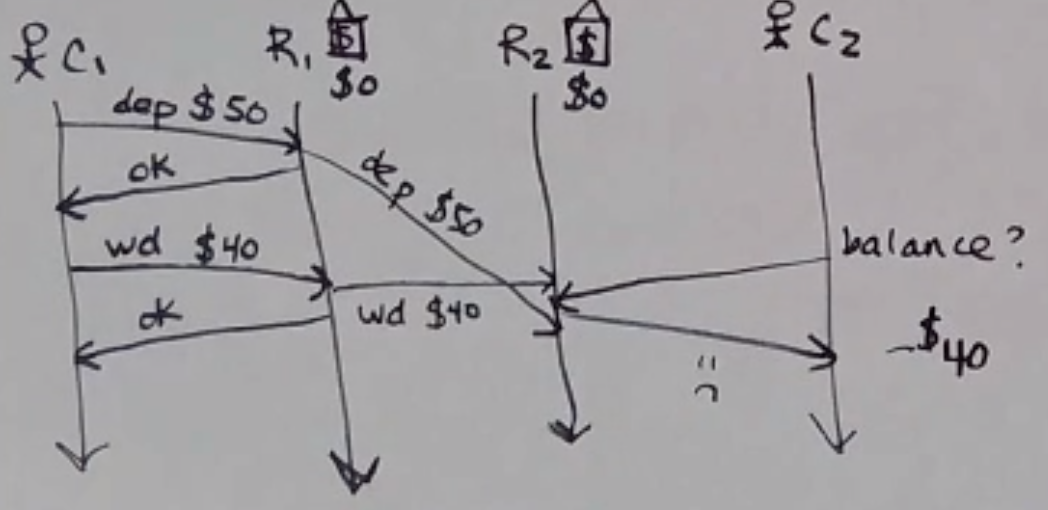 C₁
R₁ $
$0
R₂ $
$0
C₂
dep $50
ok
dep $50
wd $40
balance?
wd $40
ok
-$40